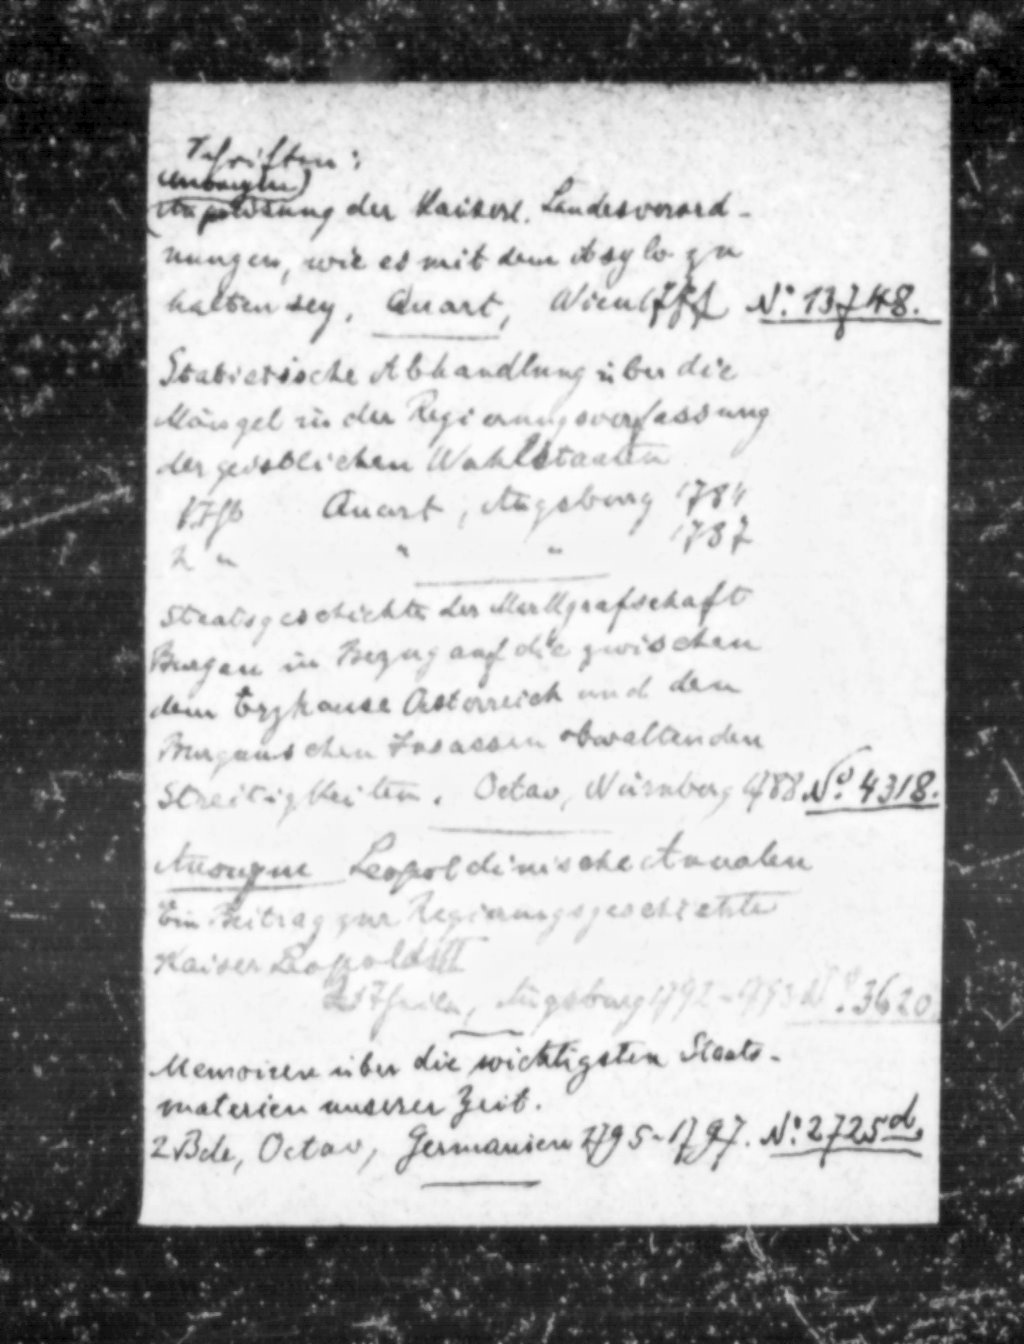 Schriften:
Anonym
der Kaiserl. Landesverord-
nungen, wie es mit dem Asylo zu
halten sey. Quart, Wien N: 13748.
Statistische Abhandlung über die
Mängel in der Regierungsverfassung
der geistlichen Wahlstaaten
Quart, Augsburg 1784
2 " " " 1787
Staatsgeschichte der Markgrafschaft
Burgau in Bezug auf die zwischen
dem Erzhause Oesterreich und den
Burgauischen Insassen obwaltenden
Streitigkeiten. Octav, Nürnberg 1788 No. 4318.
Anonyme Leopoldinische Annalen
Ein Beitrag zur Regierungsgeschichte
Kaiser Leopolds II
2 Theile, Augsburg 1792-1793 No. 3620
Memoiren über die wichtigsten Staats-
materien unserer Zeit.
2 Bde, Octav, Germanien 1795-1797. N: 2725d.